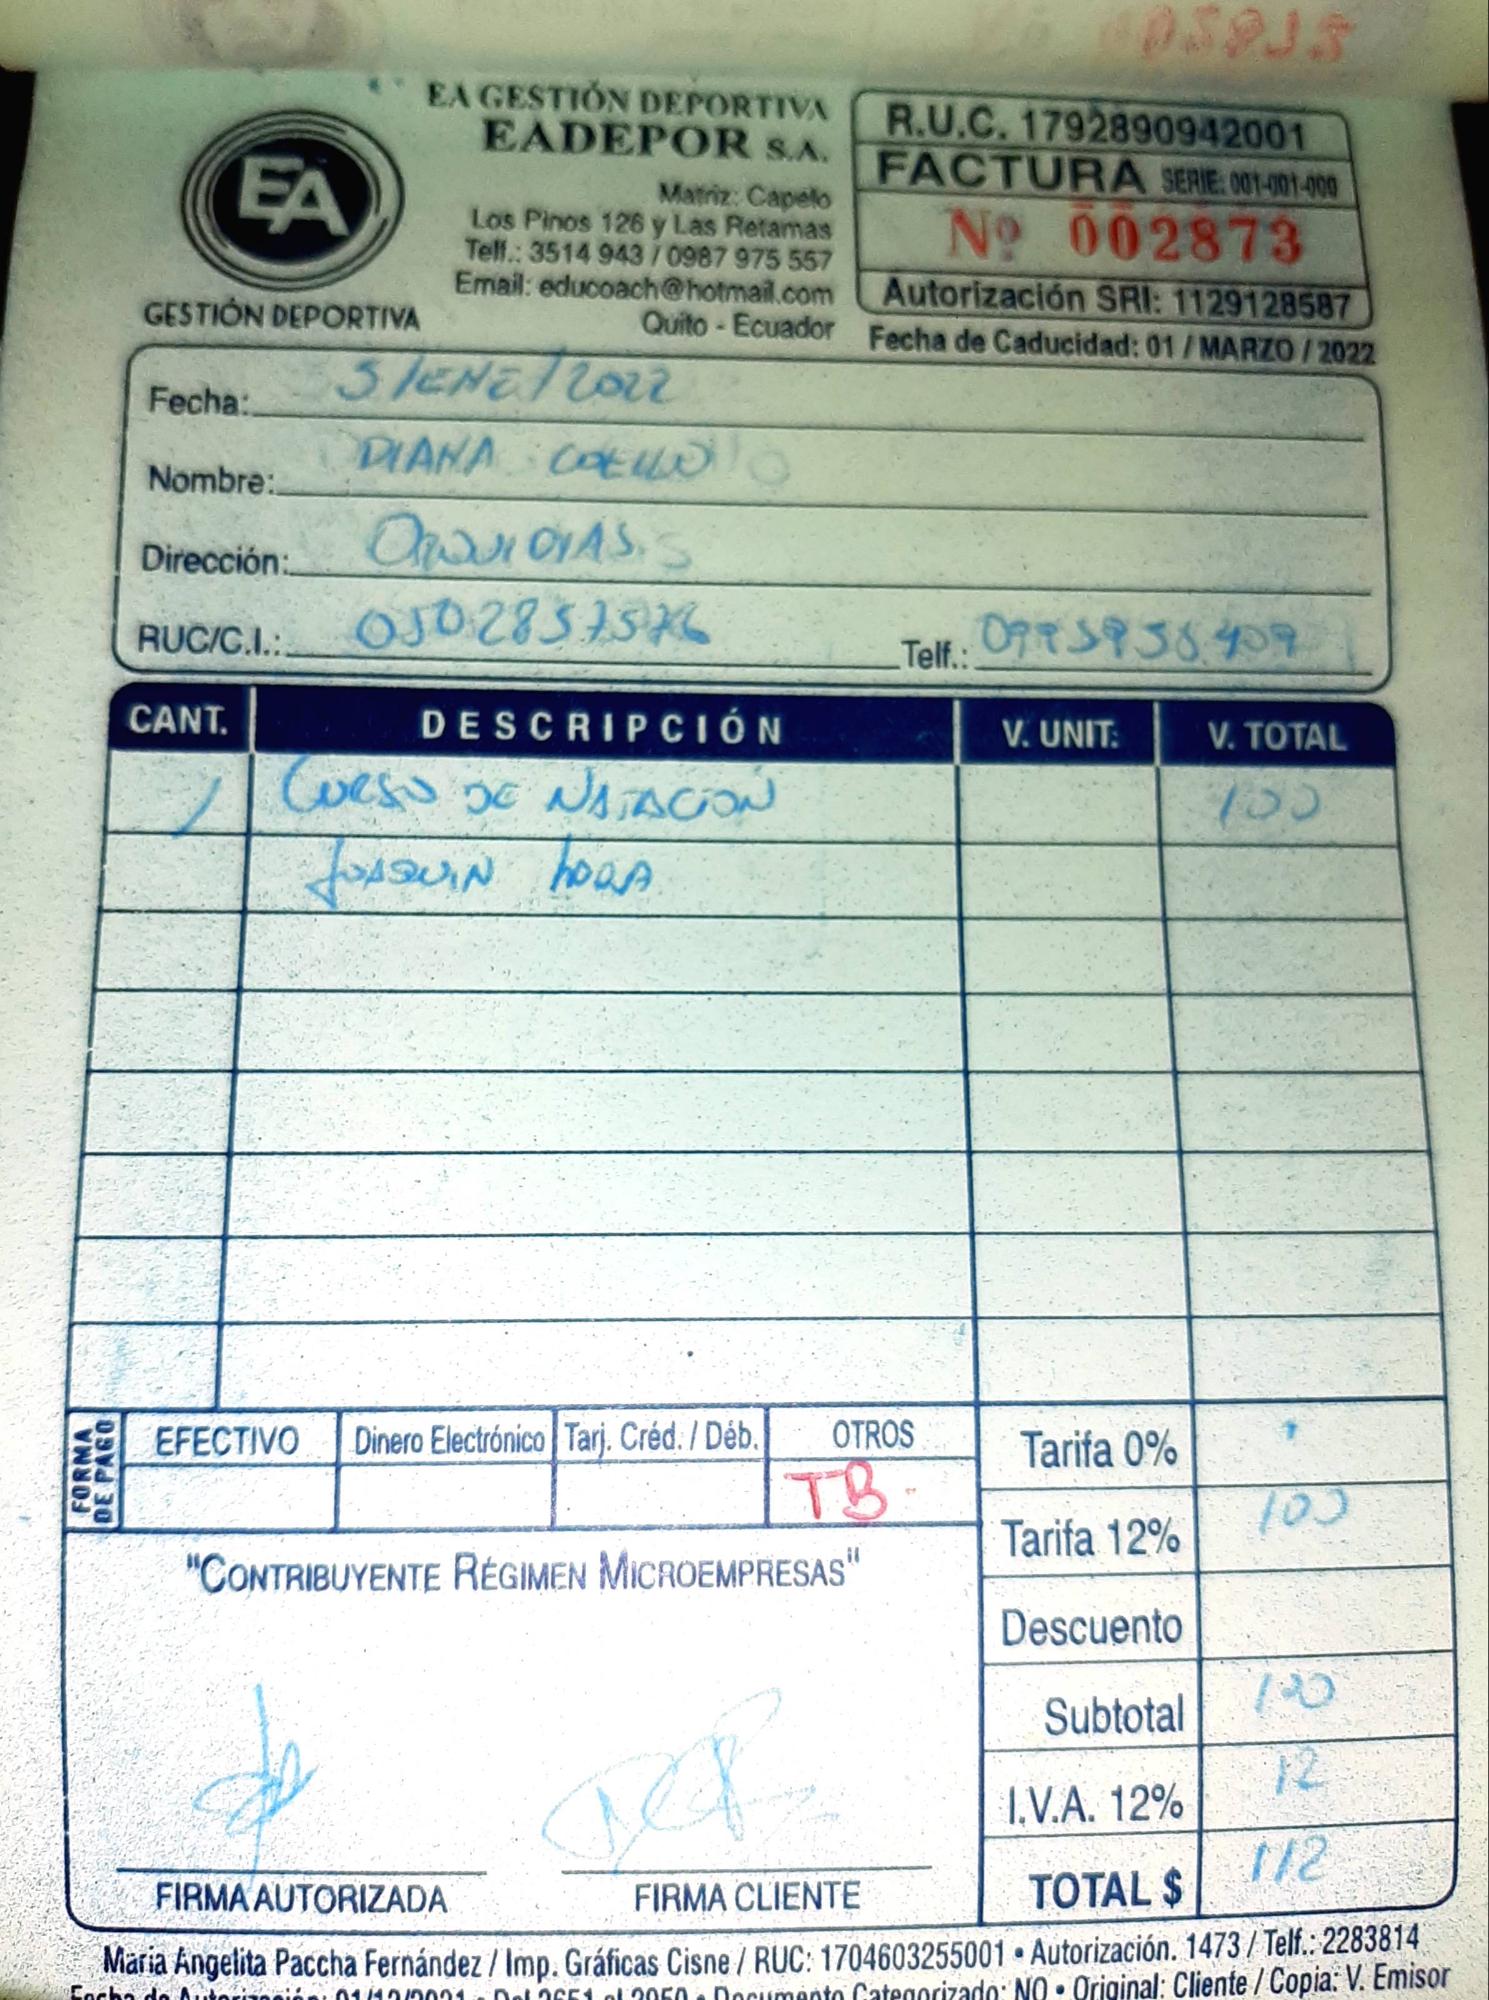 EA GESTIÓN DEPORTIVA
EADEPOR S.A.
EA
GESTIÓN DEPORTIVA
Matriz: Capelo
Los Pinos 126 y Las Retamas
Telf.: 3514 943 / 0987 975 557
Email: educoach@hotmail.com
Quito - Ecuador
R.U.C. 1792890942001
FACTURA SERIE: 001-001-000
Nº 002873
Autorización SRI: 1129128587
Fecha de Caducidad: 01 / MARZO / 2022
Fecha: 5/ENE/2022
Nombre: DIANA COELLO
Dirección:
RUC/C.I.: Telf.:
CANT. DESCRIPCIÓN V. UNIT. V. TOTAL
1 CURSO DE NATACION 100
JOAQUIN
FORMA DE PAGO EFECTIVO Dinero Electrónico Tarj. Créd. / Déb. OTROS
TB
Tarifa 0%
Tarifa 12% 100
Descuento
Subtotal 100
I.V.A. 12% 12
TOTAL $ 112
"CONTRIBUYENTE RÉGIMEN MICROEMPRESAS"
FIRMA AUTORIZADA FIRMA CLIENTE
María Angelita Paccha Fernández / Imp. Gráficas Cisne / RUC: 1704603255001 • Autorización. 1473 / Telf.: 2283814
Fecha de Autorización: 01/12/2021 • Del 2651 al 2950 • Documento Categorizado: NO • Original: Cliente / Copia: V. Emisor